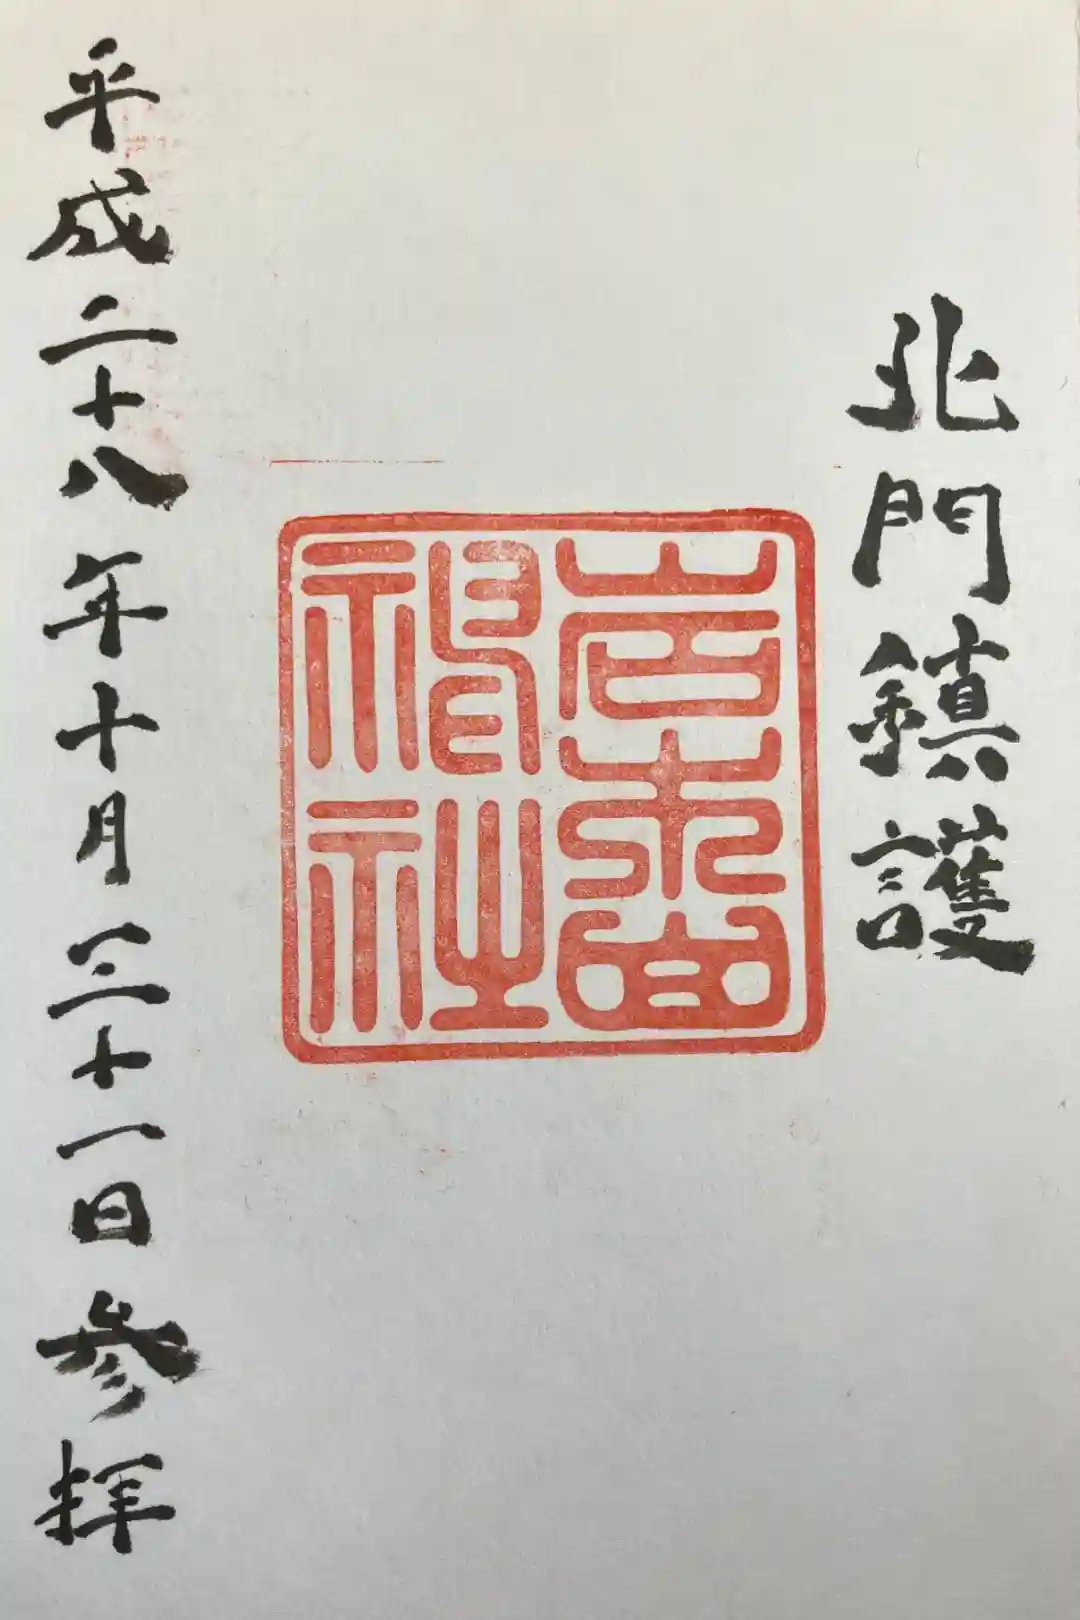 北門鎮護
岩木山
神社
平成二十八年十月三十一日参拝